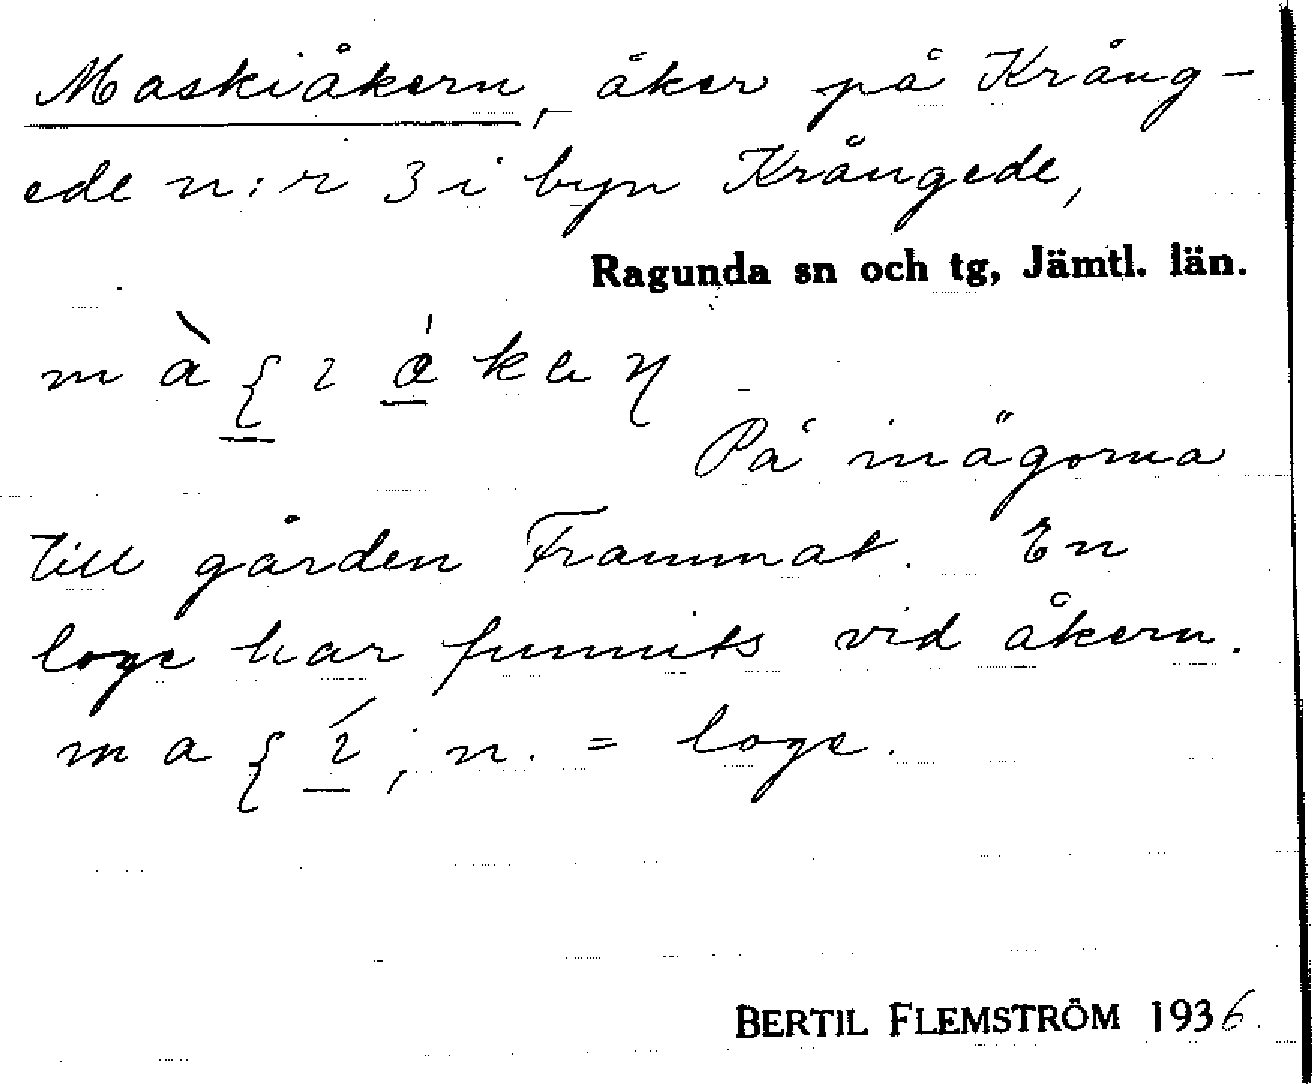 Maskiåkern, åker på Krång-
ede n:r 3 i byn Krångede,
Ragunda sn och tg, Jämtl. län.
På inägorna
till gården Frammat. En
loge har funnits vid åkern.
n. = loge.
BERTIL FLEMSTRÖM 1936.